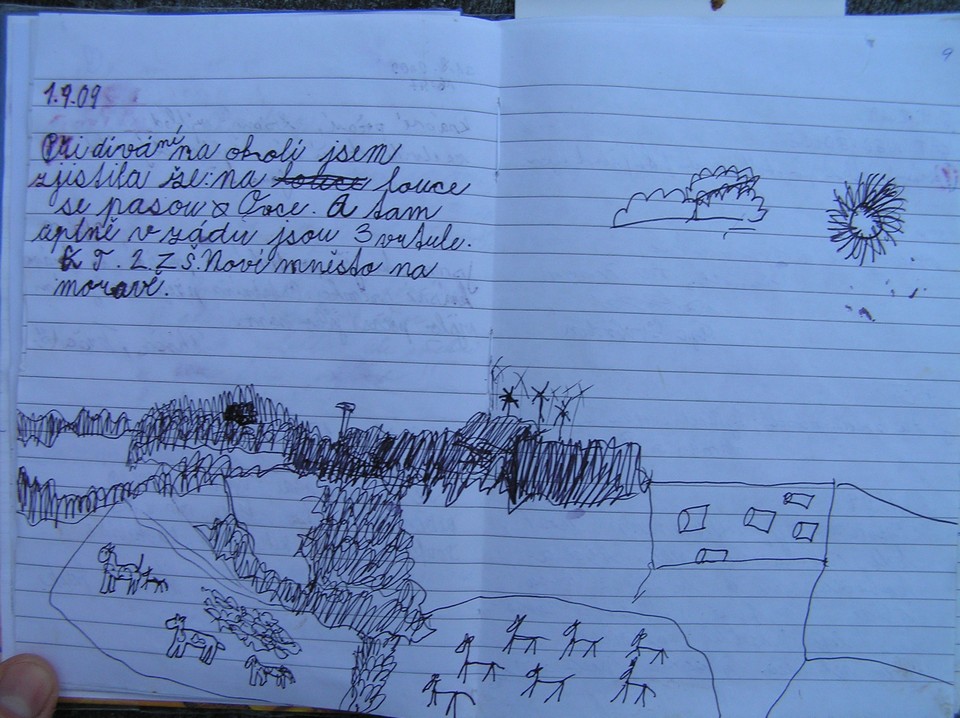 1.9.09
Při dívání na okolí jsem
zjistila že: na louce
se pasou Ovce. A tam
úplně v zádu jsou 3 vrtule.
K T. 2. Z Š. Nové mněsto na
moravě.
9